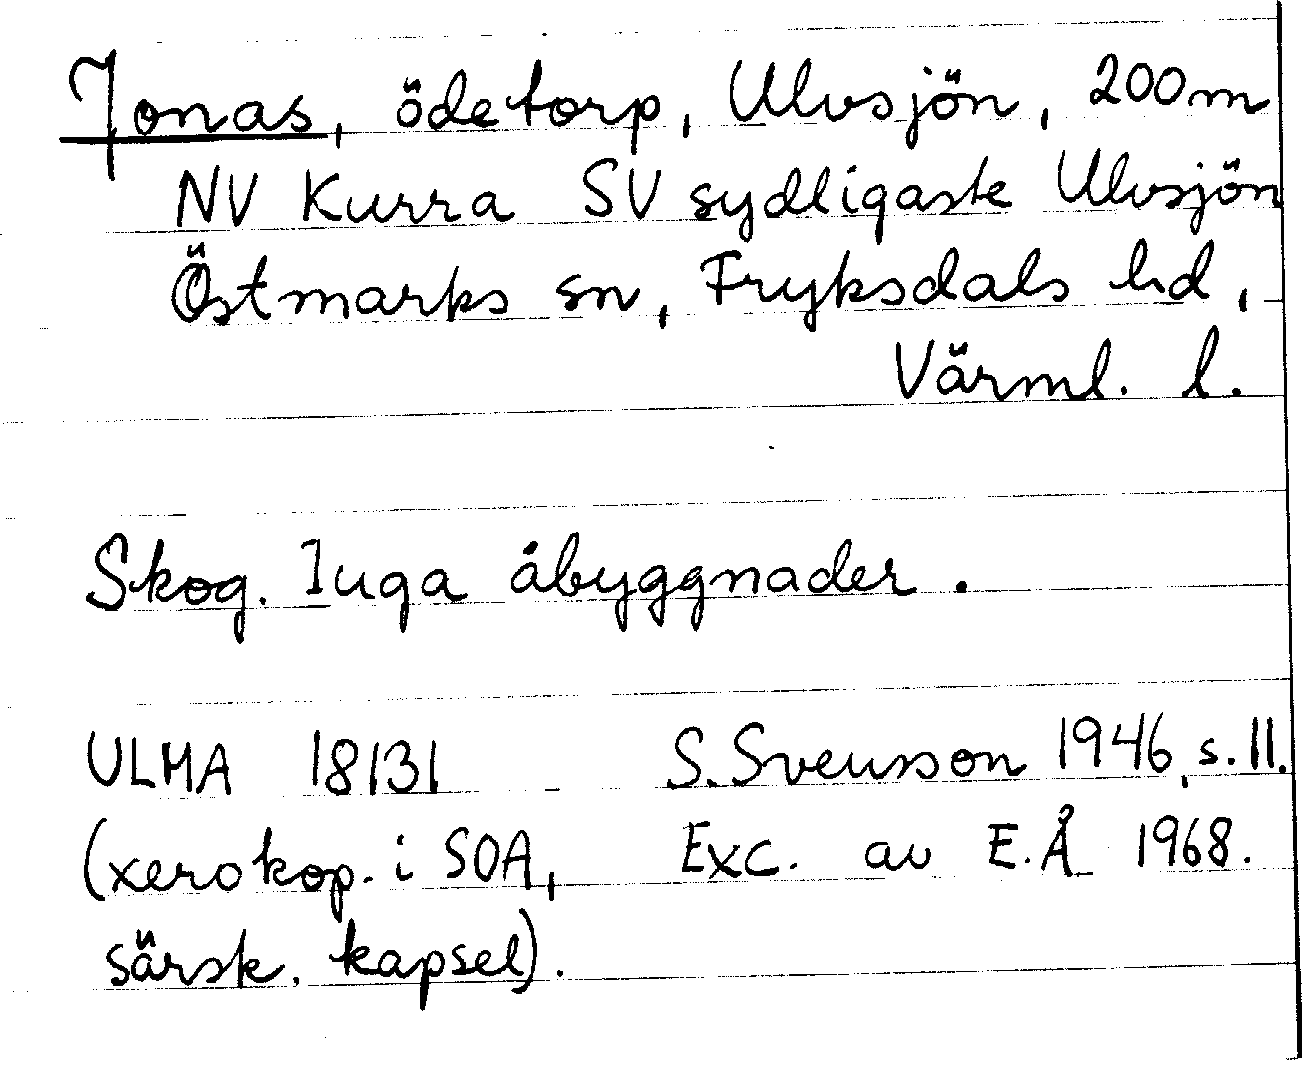 Jonas, ödetorp, Ulvsjön, 200m
NV Kurra SV sydligaste Ulvsjön
Östmarks sn, Fryksdals hd,
Värml. l.
Skog. Inga åbyggnader.
ULMA 18131 S. Svensson 1946, s. 11.
(xerokop. i SOA, Exc. av E.Å 1968.
särsk. kapsel).